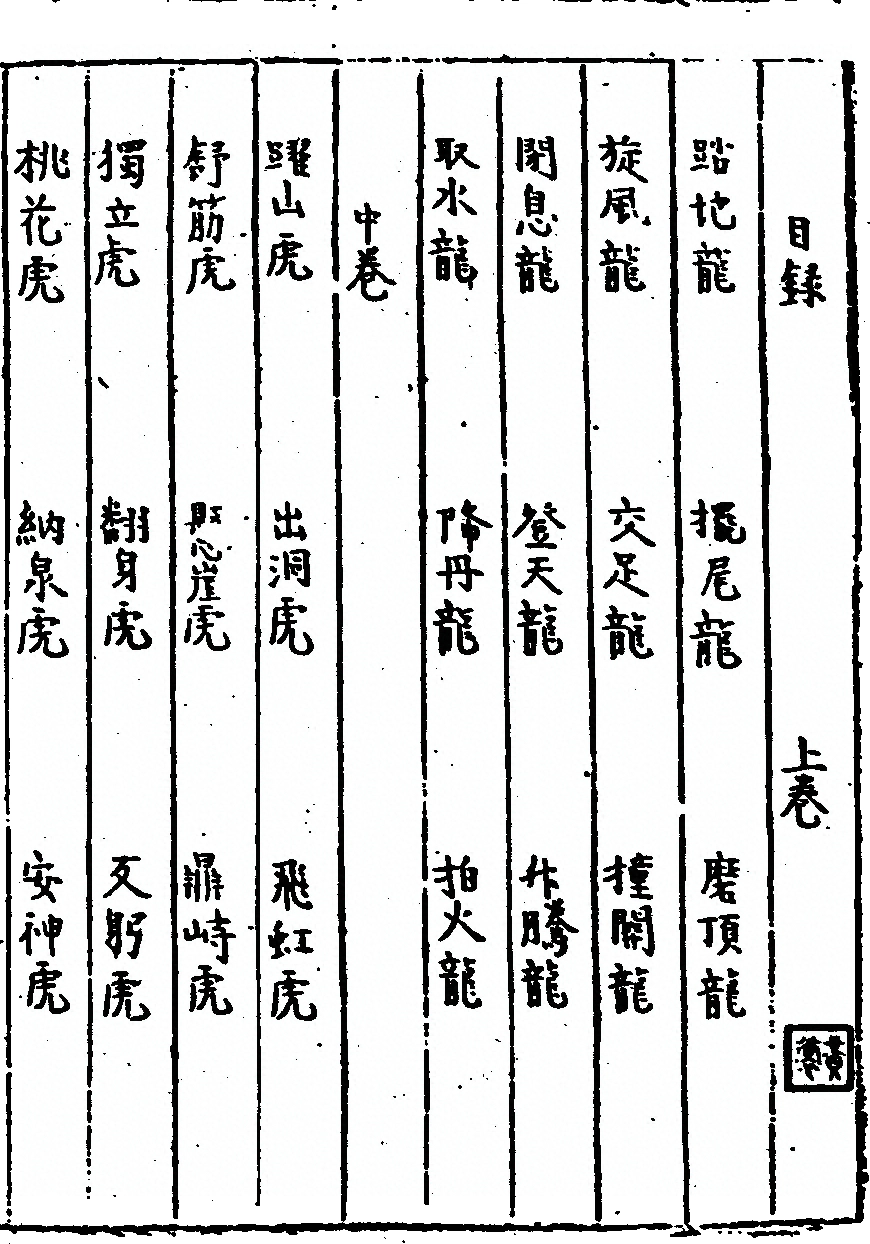 目録 上卷
蹈地龍 擺尾龍 磨頂龍
旋風龍 交足龍 撞關龍
閉息龍 登天龍 升騰龍
取水龍 降丹龍 拍火龍
中卷
躍山虎 出洞虎 飛虹虎
舒筋虎 懸崖虎 鼎峙虎
獨立虎 翻身虎 反躬虎
桃花虎 納泉虎 安神虎